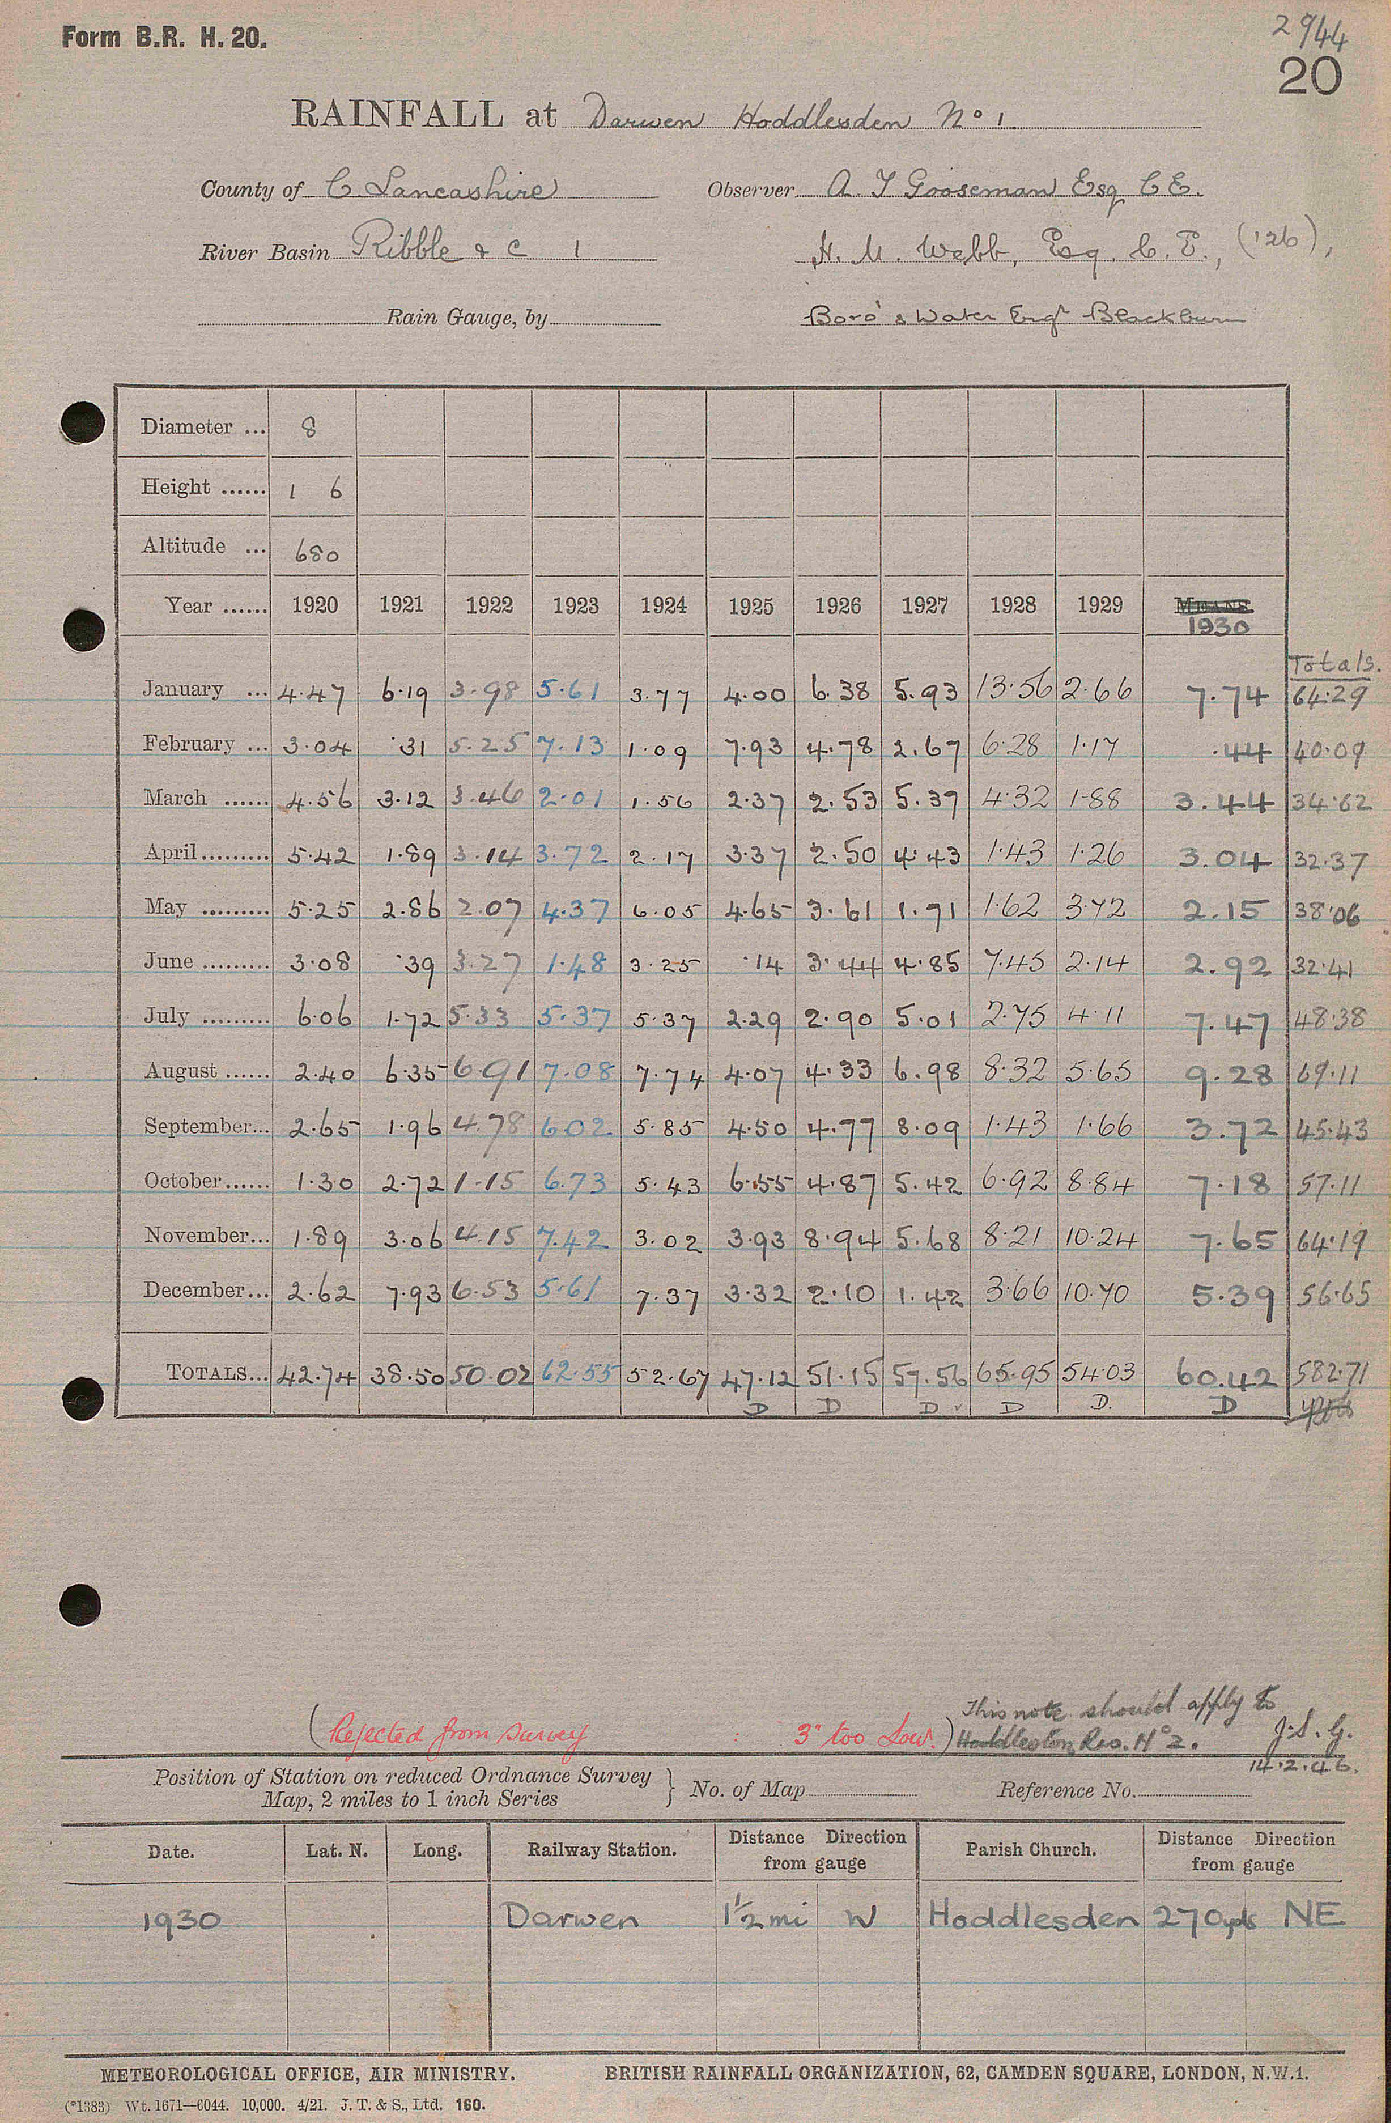 Form B.R. H. 20.
2944
20
RAINFALL at Darwen Hoddlesden No 1
County of C Lancashire Observer A. T Gooseman Esq C E.
River Basin Ribble & C 1 H. M. Webb, Esq. C. E., (126),
Rain Gauge, by Boro' & Water Engr Blackburn
Diameter ... 8
Height ...... 1 6
Altitude ... 680
Year ...... 1920 1921 1922 1923 1924 1925 1926 1927 1928 1929 MEANS 1930
Totals.
January ... 4.47 6.19 3.98 5.61 3.77 4.00 6.38 5.93 13.56 2.66 7.74 64.29
February ... 3.04 .31 5.25 7.13 1.09 7.93 4.78 2.67 6.28 1.17 .44 40.09
March ...... 4.56 3.12 3.46 2.01 1.56 2.37 2.53 5.39 4.32 1.88 3.44 34.62
April......... 5.42 1.89 3.14 3.72 2.17 3.37 2.50 4.43 1.43 1.26 3.04 32.37
May ......... 5.25 2.86 2.07 4.37 6.05 4.65 3.61 1.71 1.62 3.72 2.15 38.06
June ......... 3.08 .39 3.27 1.48 3.25 .14 3.44 4.85 7.45 2.14 2.92 32.41
July ......... 6.06 1.72 5.33 5.37 5.37 2.29 2.90 5.01 2.75 4.11 7.47 48.38
August ...... 2.40 6.35 6.91 7.08 7.74 4.07 4.33 6.98 8.32 5.65 9.28 69.11
September... 2.65 1.96 4.78 6.02 5.85 4.50 4.77 8.09 1.43 1.66 3.72 45.43
October...... 1.30 2.72 1.15 6.73 5.43 6.55 4.87 5.42 6.92 8.84 7.18 57.11
November... 1.89 3.06 4.15 7.42 3.02 3.93 8.94 5.68 8.21 10.24 7.65 64.19
December... 2.62 7.93 6.53 5.61 7.37 3.32 2.10 1.42 3.66 10.70 5.39 56.65
TOTALS... 42.74 38.50 50.02 62.55 52.67 47.12 51.15 57.56 65.95 54.03 60.42 582.71
D D D D D. D
(Rejected from Survey : 3" too Low.) This note should apply to
Hoddleston Res. No 2. J. S. G.
14.2.46.
Position of Station on reduced Ordnance Survey
Map, 2 miles to 1 inch Series } No. of Map Reference No.
Date. Lat. N. Long. Railway Station. Distance Direction from gauge Parish Church. Distance Direction from gauge
1930 Darwen 1½ mi W Hoddlesden 270 yds NE
METEOROLOGICAL OFFICE, AIR MINISTRY. BRITISH RAINFALL ORGANIZATION, 62, CAMDEN SQUARE, LONDON, N.W.1.
(*1383) Wt. 1671—6044. 10,000. 4/21. J. T. & S., Ltd. 160.